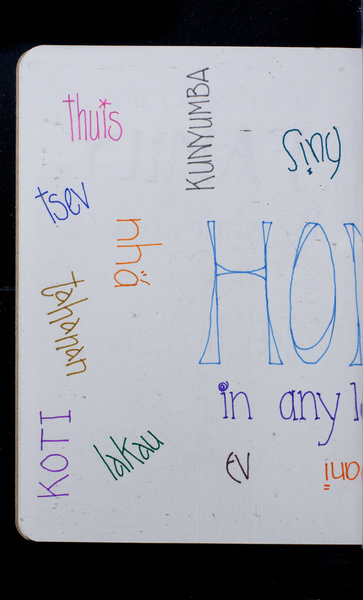 thuis
KUNYUMBA
sịng
tsev
nhà
HOM
tahanan
in any l
KOTI
lakay
EV